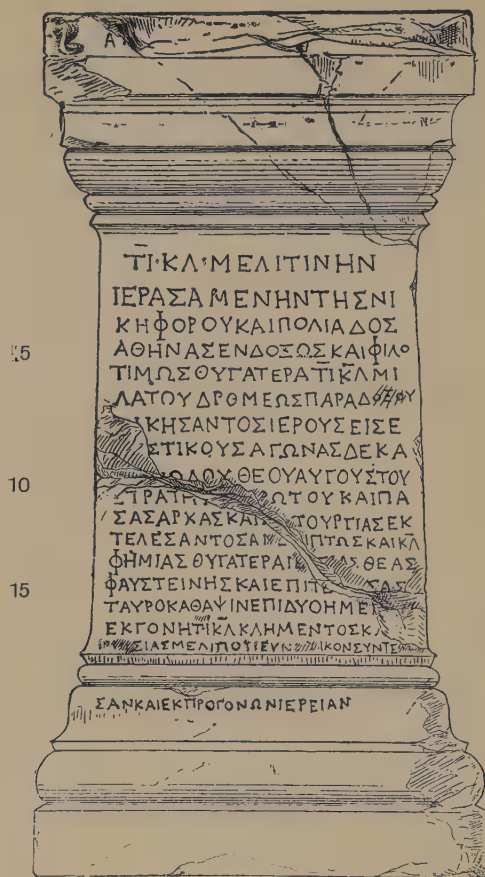 Α
ΤΙ·ΚΛ·ΜΕΛΙΤΙΝΗΝ
ΙΕΡΑΣΑΜΕΝΗΝΤΗΣΝΙ
ΚΗΦΟΡΟΥΚΑΙΠΟΛΙΑΔΟΣ
5 ΑΘΗΝΑΣΕΝΔΟΞΩΣΚΑΙΦΙΛΟ
ΤΙΜΩΣΘΥΓΑΤΕΡΑΤΙΚΛΜΙ
ΛΑΤΟΥΔΡΟΜΕΩΣΠΑΡΑΔ
ΚΗΣΑΝΤΟΣΙΕΡΟΥΣΕΙΣΕ
ΣΤΙΚΟΥΣΑΓΩΝΑΣΔΕΚΑ
10 ΩΛΟΥΘΕΟΥΑΥΓΟΥΣΤΟΥ
ΣΤΡΑΤΗ ΩΤΟΥΚΑΙΠΑ
ΣΑΣΑΡΚΑΣΚΑΙ ΤΟΥΡΓΙΑΣΕΚ
ΤΕΛΕΣΑΝΤΟΣΑ ΠΤΩΣΚΑΙΚΛ
ΦΗΜΙΑΣΘΥΓΑΤΕΡΑ ΘΕΑΣ
15 ΦΑΥΣΤΕΙΝΗΣΚΑΙΕΠΙΤΕ ΣΑΣ
ΤΑΥΡΟΚΑΘΑΨΙΝΕΠΙΔΥΟΗΜΕ
ΕΚΓΟΝΗΤΙΚΛΚΛΗΜΕΝΤΟΣΚ
ΣΙΑΣΜΕΛΙΤ ΙΚΟΝΣΥΝΤΕ
ΣΑΝΚΑΙΕΚΠΡΟΓΟΝΩΝΙΕΡΕΙΑΝ